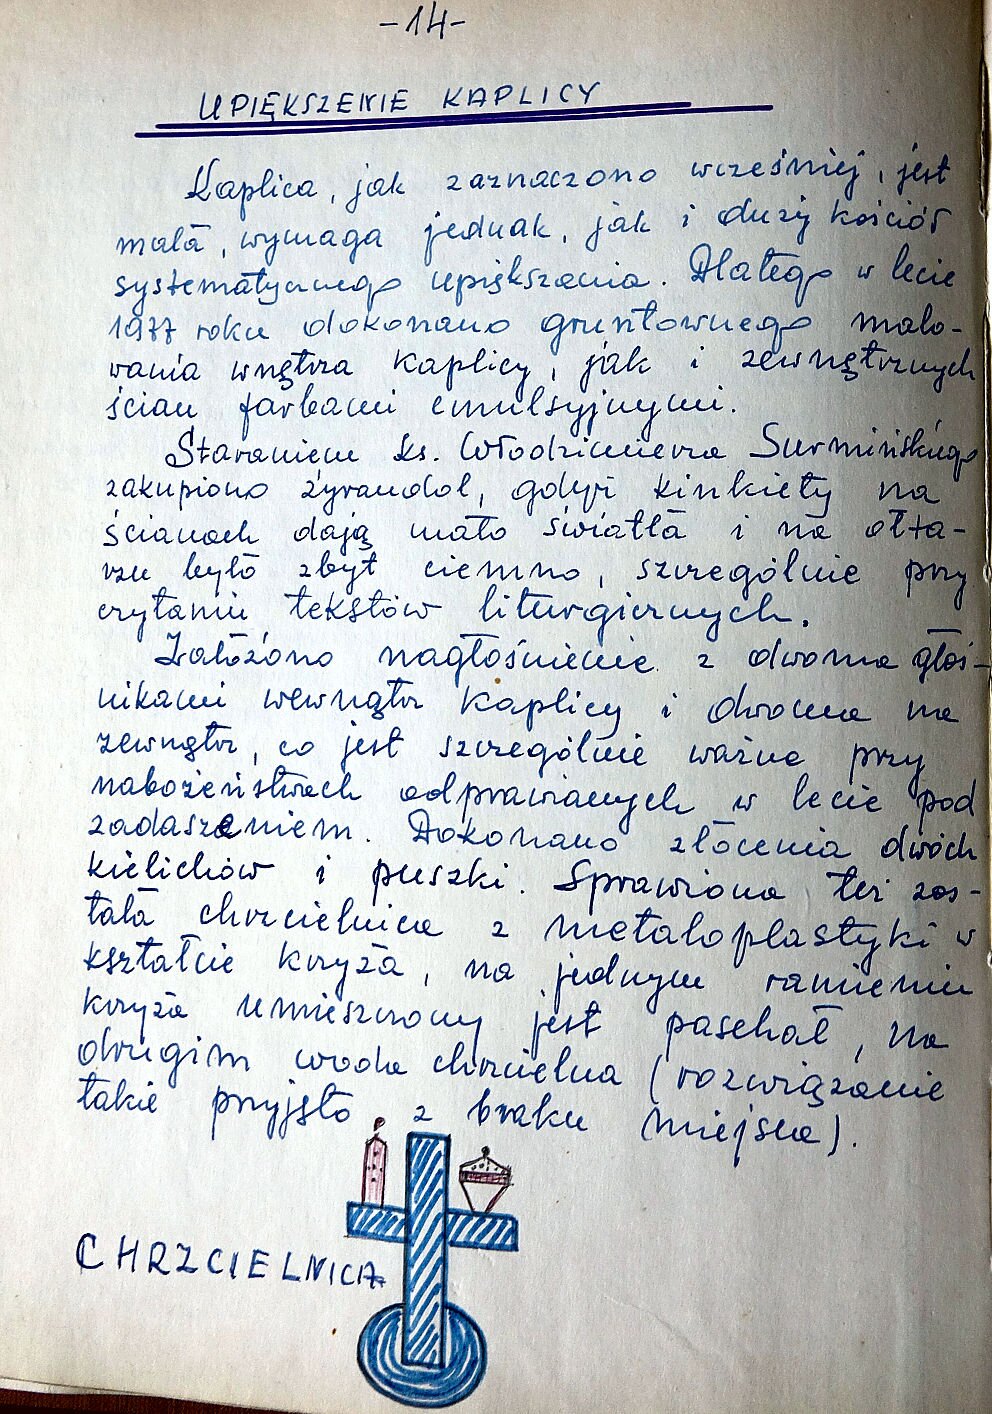 -14-
UPIĘKSZENIE KAPLICY
Kaplica, jak zaznaczono wcześniej, jest
mała, wymaga jednak, jak i duży kościół
systematycznego upiększania. Dlatego w lecie
1977 roku dokonano gruntownego malo-
wania wnętrza kaplicy, jak i zewnętrznych
ścian farbami emulsyjnymi.
Staraniem ks. Włodzimierza Surmińskiego
zakupiono żyrandol, gdyż kinkiety na
ścianach dają mało światła i na ołta-
rzu było zbyt ciemno, szczególnie przy
czytaniu tekstów liturgicznych.
Założono nagłośnienie z dwoma głoś-
nikami wewnątrz kaplicy i dwoma na
zewnątrz, co jest szczególnie ważne przy
nabożeństwach odprawianych w lecie pod
zadaszeniem. Dokonano złocenia dwóch
kielichów i puszki. Sprawiona też zos-
tała chrzcielnica z metaloplastyki w
kształcie krzyża, na jednym ramieniu
krzyża umieszczony jest paschał, na
drugim woda chrzcielna (rozwiązanie
takie przyjęto z braku miejsca).
CHRZCIELNICA